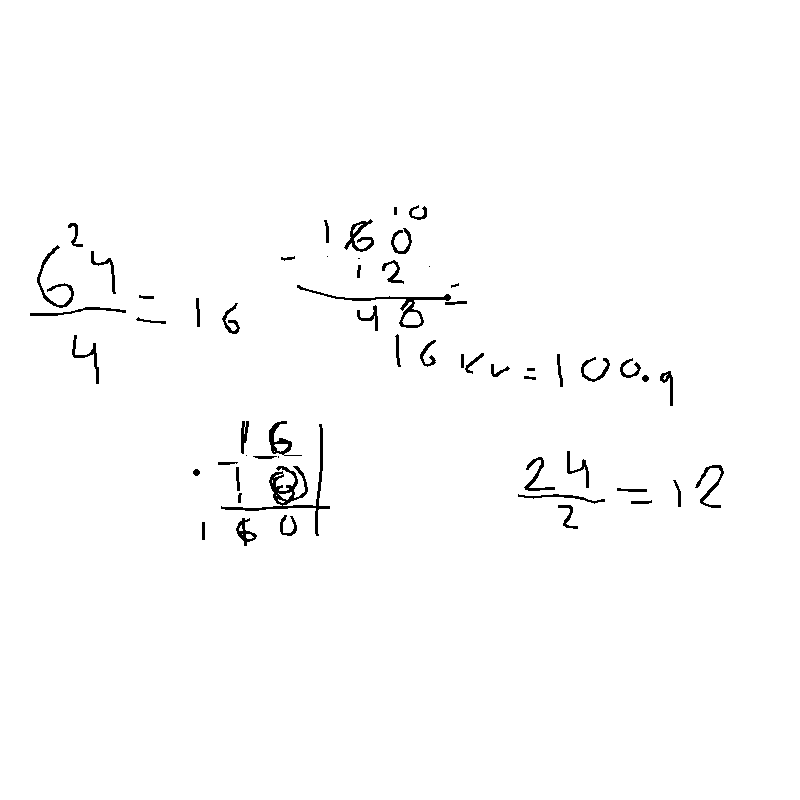 6²4 / 4 = 16
10
- 160
12 =
48
16 kr = 100.9
16
· 10
160
24 / 2 = 12